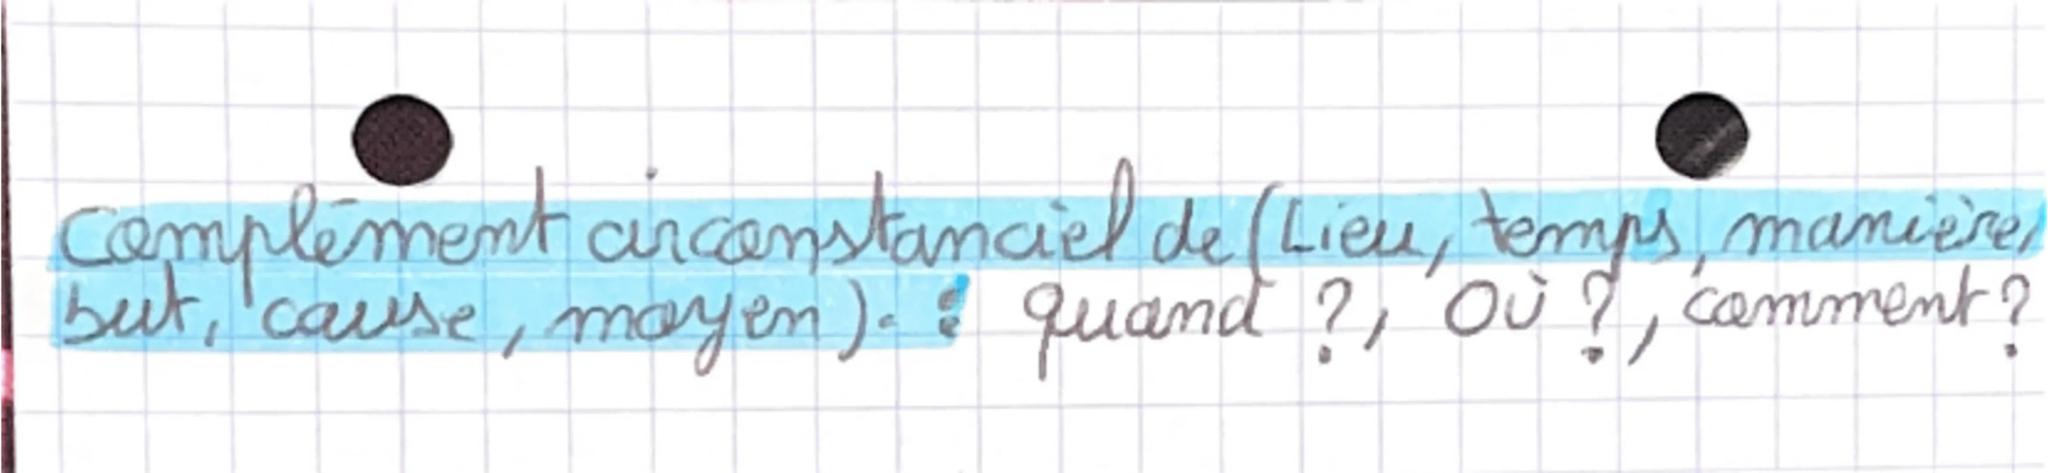 Complément circonstanciel de (Lieu, temps, manière,
but, cause, moyen). : quand ?, Où ?, comment ?